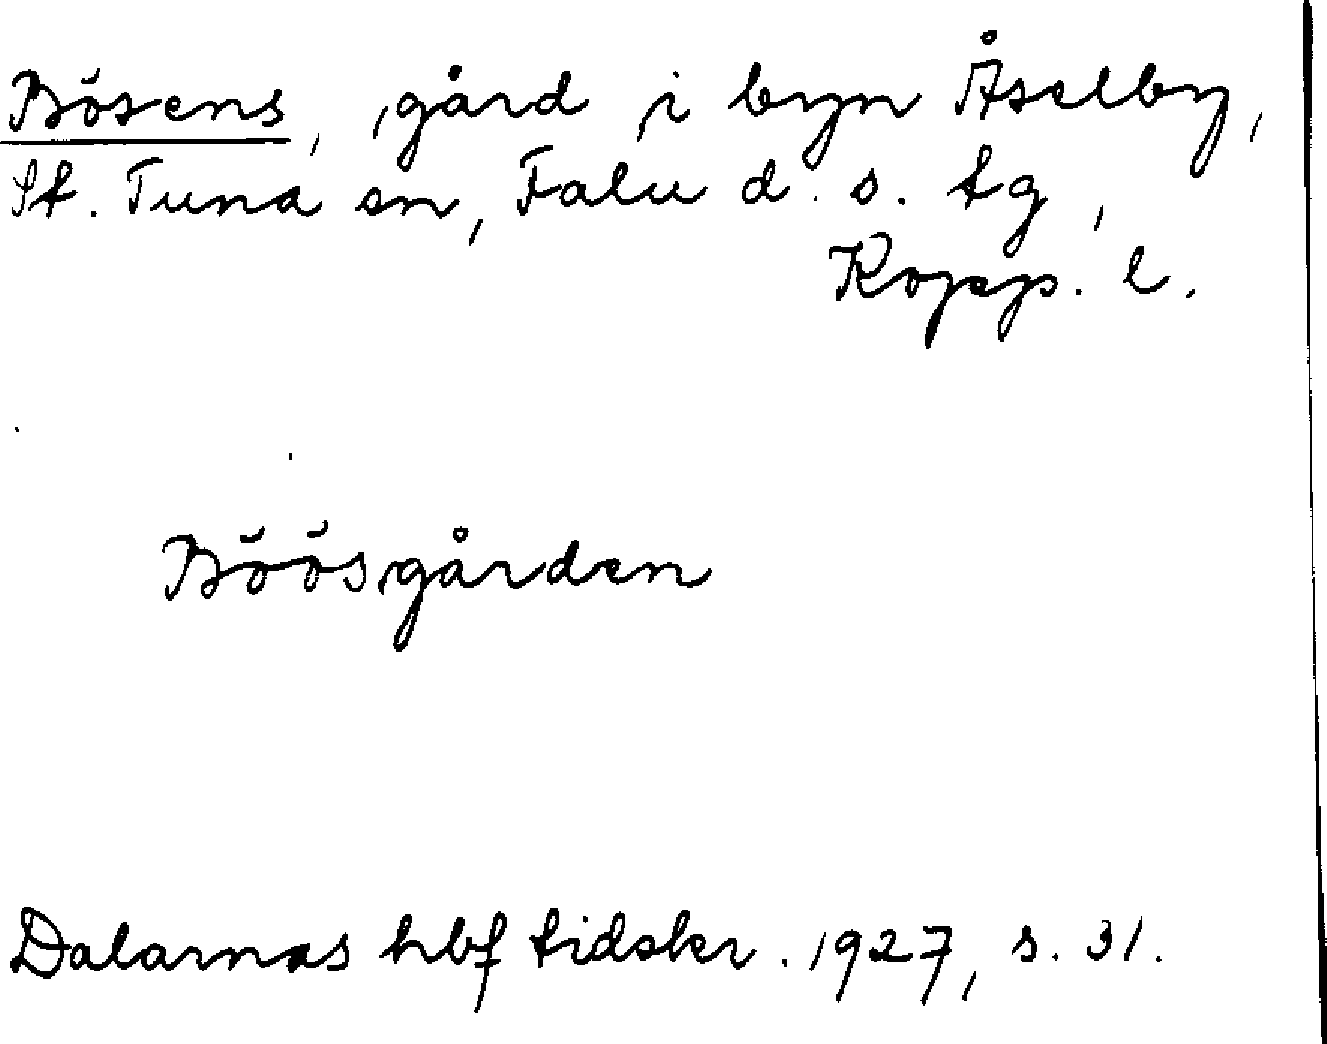 Bösens, gård i byn Åselby,
St. Tuna sn, Falu d. s. tg,
Kopp. l.
Böösgården
Dalarnas hbf tidskr. 1927, s. 31.